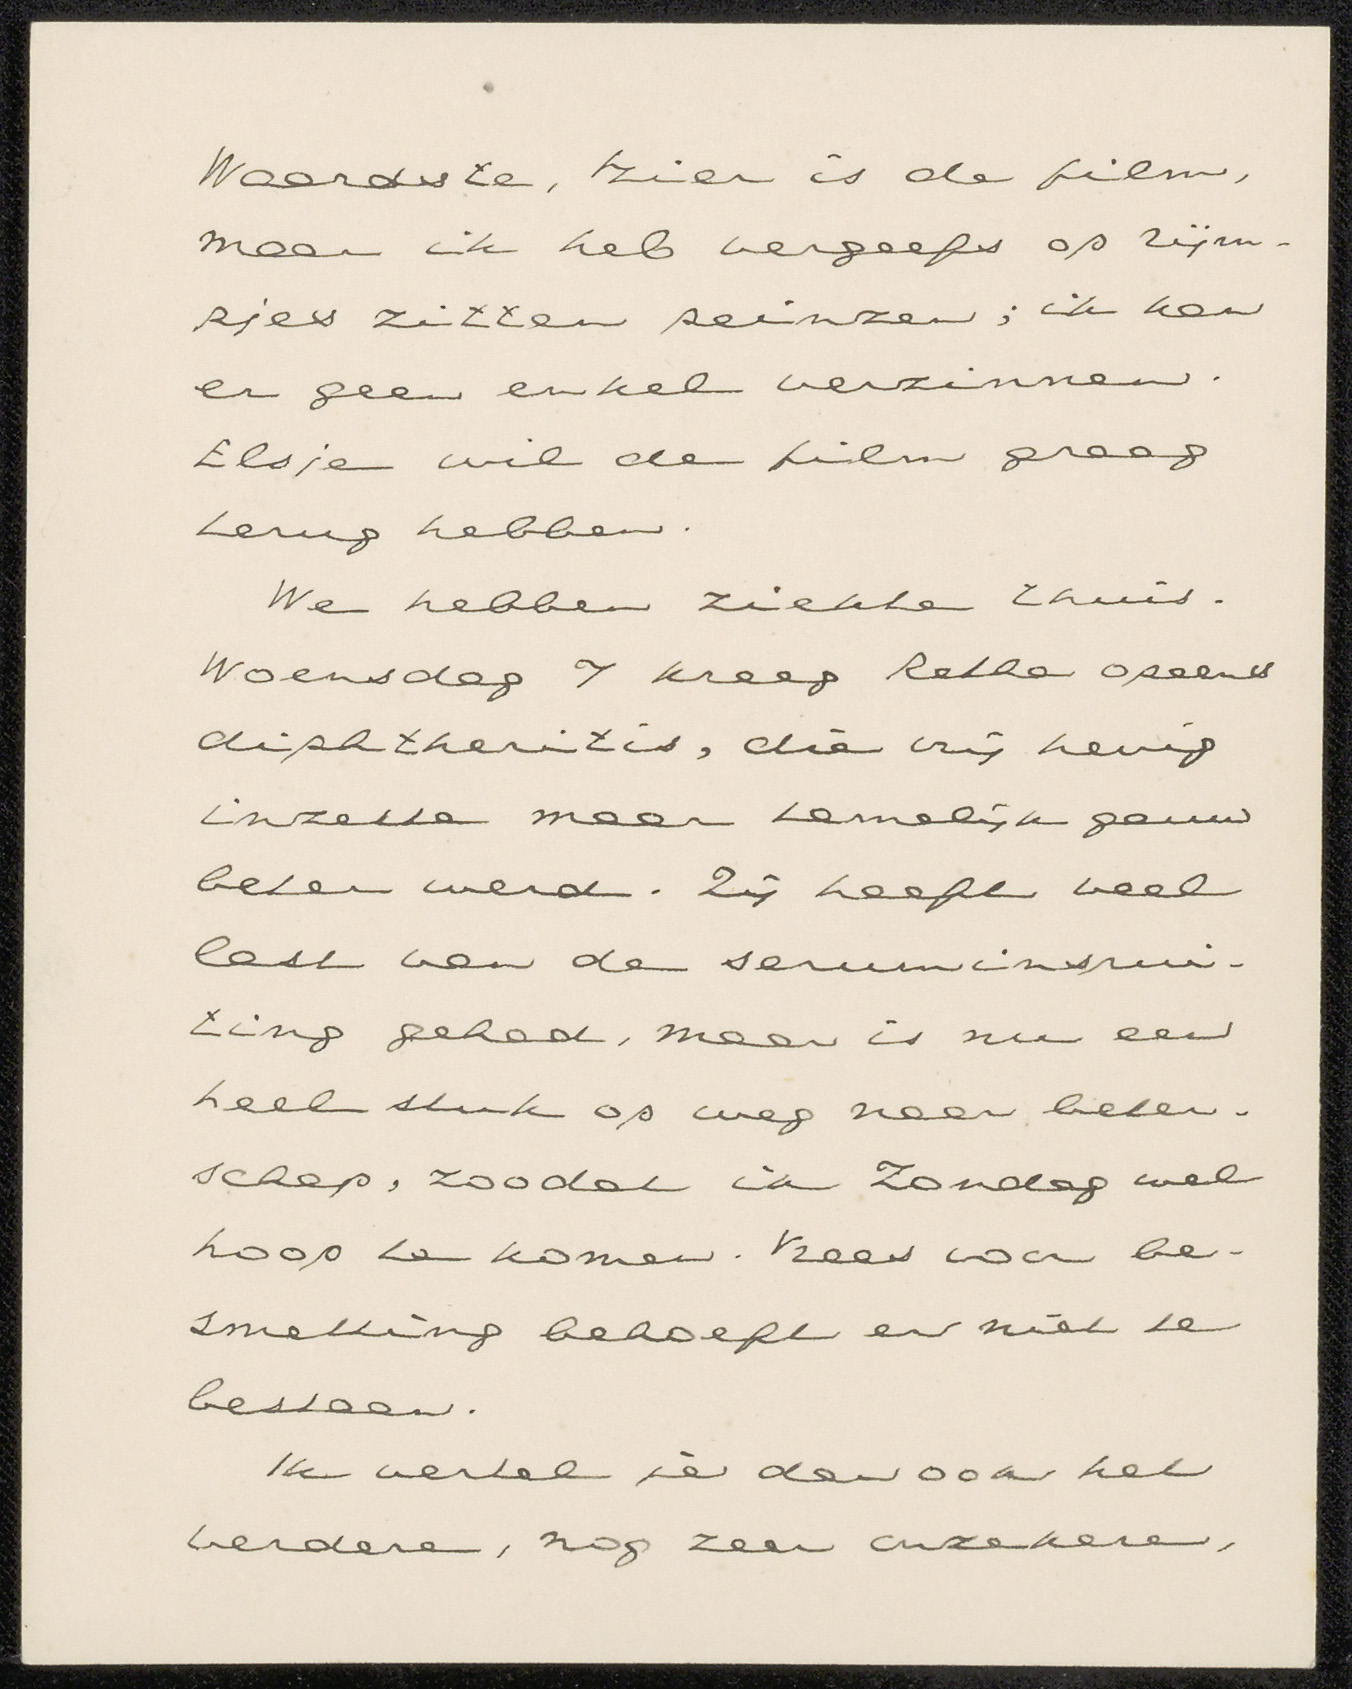 Waardste, Hier is de film,
maar ik heb vergeefs op rijm-
pjes zitten peinzen; ik kan
er geen enkel verzinnen.
Elsje wil de film graag
terug hebben.
We hebben ziekte thuis.
Woensdag 7 kreeg Retha opeens
diphtheritis, die vrij hevig
inzette maar tamelijk gauw
beter werd. Zij heeft veel
last van de seruminspui-
ting gehad, maar is nu een
heel stuk op weg naar beter-
schap, zoodat ik Zondag wel
hoop te komen. Vrees voor be-
smetting behoeft er niet te
bestaan.
Ik vertel je dan ook het
verdere, nog zeer onzekere,